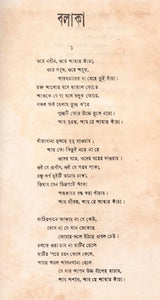 বলাকা
১
ওরে নবীন, ওরে আমার কাঁচা,
ওরে সবুজ, ওরে অবুঝ,
আধমরাদের ঘা মেরে তুই বাঁচা।
রক্ত আলোর মদে মাতাল ভোরে
আজকে যে যা বলে বলুক তোরে,
সকল তর্ক হেলায় তুচ্ছ ক'রে
পুচ্ছটি তোর উচ্চে তুলে নাচা।
আয় দুরন্ত, আয় রে আমার কাঁচা।
খাঁচাখানা দুলছে মৃদু হাওয়ায়।
আর তো কিছুই নড়ে না রে
ওদের ঘরে, ওদের ঘরের দাওয়ায়।
ওই যে প্রবীণ, ওই যে পরম পাকা,
চক্ষু-কর্ণ দুইটি ডানায় ঢাকা,
ঝিমায় যেন চিত্রপটে আঁকা
অন্ধকারে বন্ধ করা খাঁচায়।
আয় জীবন্ত, আয় রে আমার কাঁচা।
বাহিরপানে তাকায় না যে কেউ,
দেখে না যে বান ডেকেছে
জোয়ার-জলে উঠছে প্রবল ঢেউ।
চলতে ওরা চায় না মাটির ছেলে
মাটির 'পরে চরণ ফেলে ফেলে,
আছে অচল আসনখানা মেলে
যে যার আপন উচ্চ বাঁশের মাচায়,
আয় অশান্ত, আয় রে আমার কাঁচা।